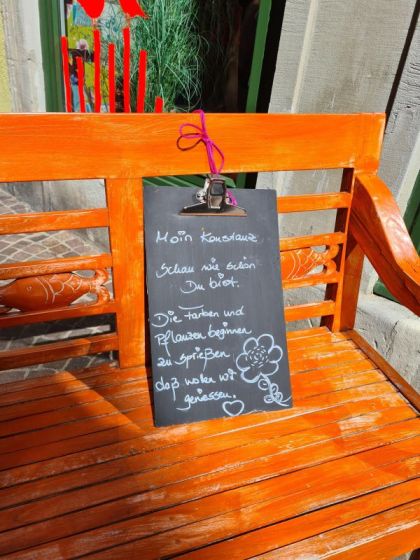 Moin Konstanz
Schau wie schön
Du bist.
Die Farben und
Pflanzen beginnen
zu sprießen
daß wolen wir
geniessen.